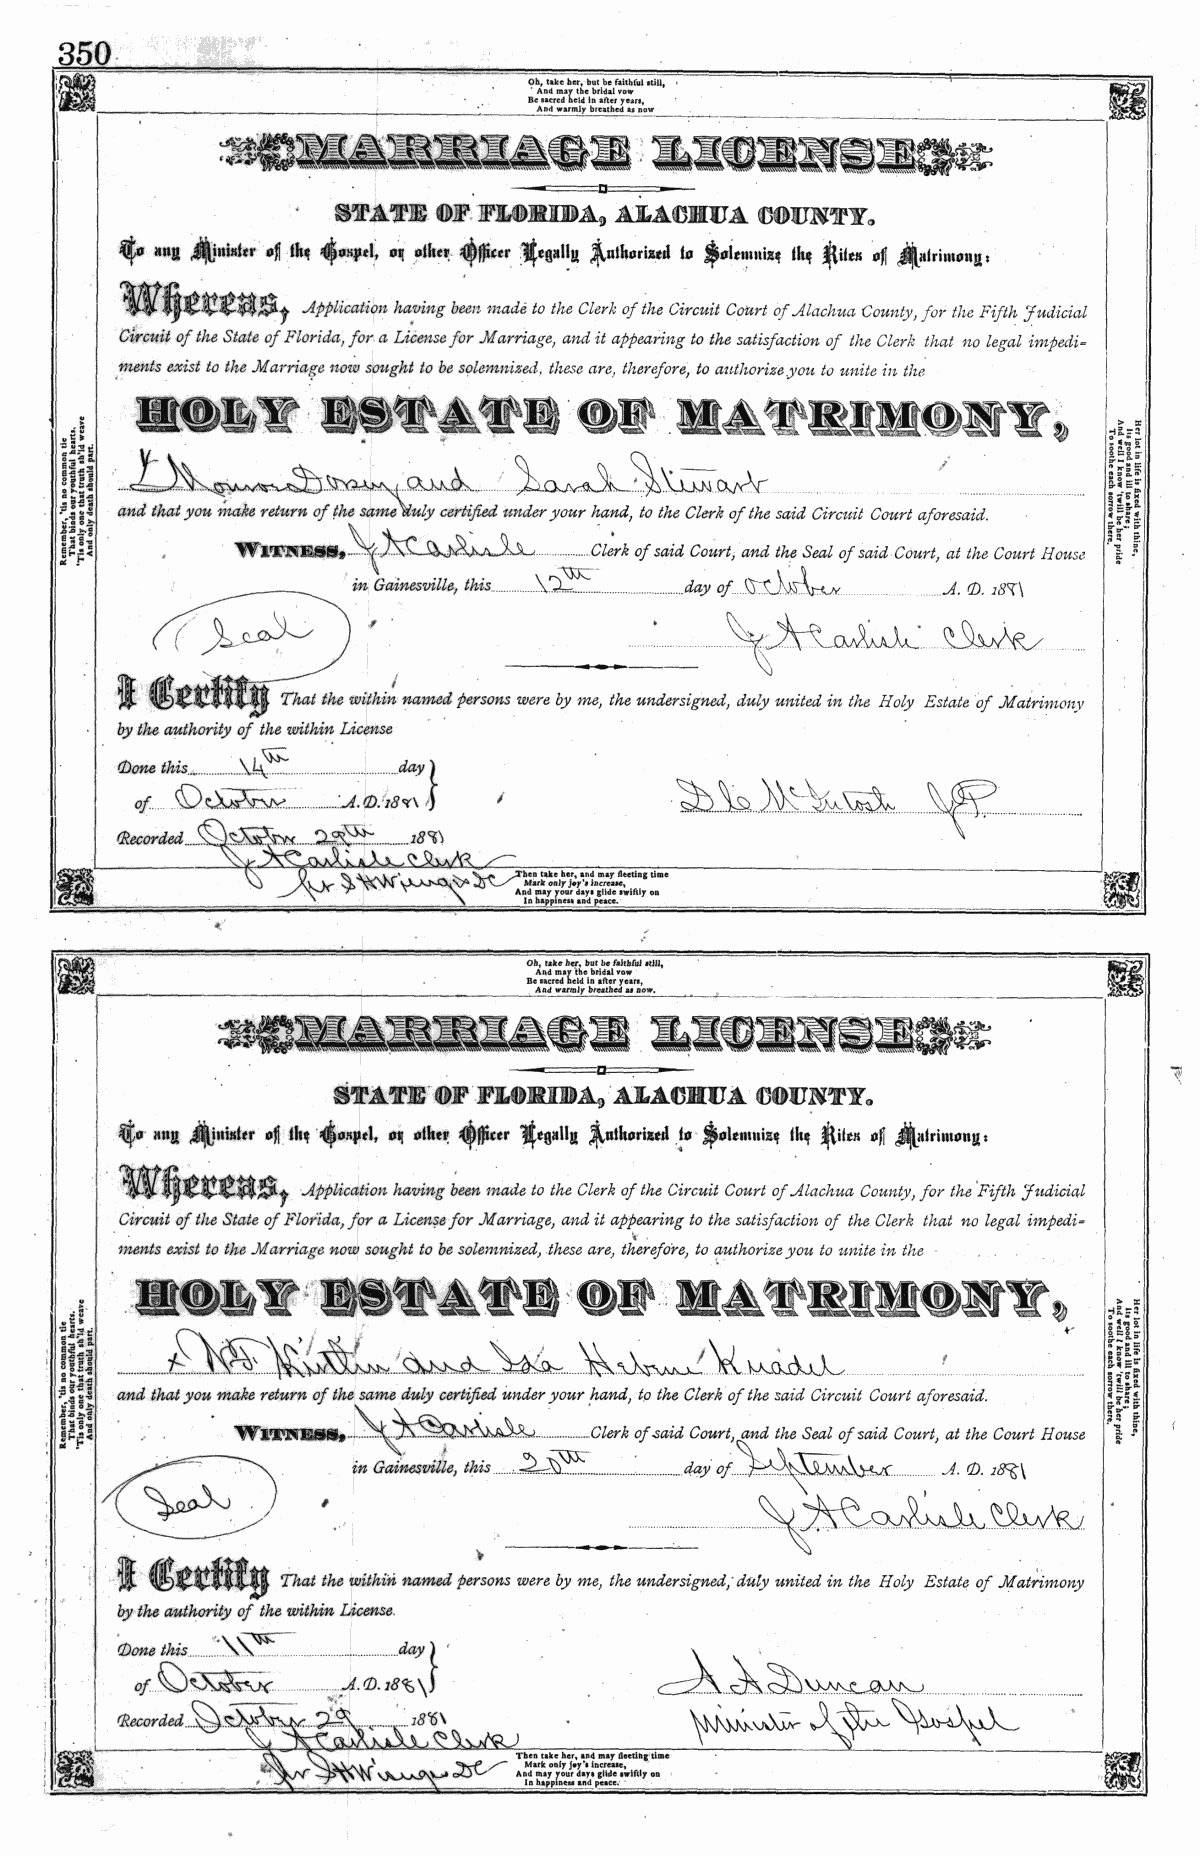 350
Oh, take her, but be faithful still,
And may the bridal vow
Be sacred held in after years,
And warmly breathed as now
MARRIAGE LICENSE
STATE OF FLORIDA, ALACHUA COUNTY.
To any Minister of the Gospel, or other Officer Legally Authorized to Solemnize the Rites of Matrimony:
Whereas, Application having been made to the Clerk of the Circuit Court of Alachua County, for the Fifth Judicial
Circuit of the State of Florida, for a License for Marriage, and it appearing to the satisfaction of the Clerk that no legal impedi=
ments exist to the Marriage now sought to be solemnized, these are, therefore, to authorize you to unite in the
HOLY ESTATE OF MATRIMONY,
Monroe Dorsey and Sarah Stewart
and that you make return of the same duly certified under your hand, to the Clerk of the said Circuit Court aforesaid.
WITNESS, J A Carlisle Clerk of said Court, and the Seal of said Court, at the Court House
in Gainesville, this 12th day of October A. D. 1881
Seal
J A Carlisle Clerk
I Certify That the within named persons were by me, the undersigned, duly united in the Holy Estate of Matrimony
by the authority of the within License
Done this 14th day
of October A.D. 1881
McIntosh J.P.
Recorded October 29th 1881
J A Carlisle Clerk
DC
Then take her, and may fleeting time
Mark only joy's increase,
And may your days glide swiftly on
In happiness and peace.
Remember, 'tis no common tie
That binds our youthful hearts,
'Tis only one that truth sh'ld weave
And only death should part.
Her lot in life is fixed with thine,
Its good and ill to share;
And well I know 'twill be her pride
To soothe each sorrow there.
Oh, take her, but be faithful still,
And may the bridal vow
Be sacred held in after years,
And warmly breathed as now.
MARRIAGE LICENSE
STATE OF FLORIDA, ALACHUA COUNTY.
To any Minister of the Gospel, or other Officer Legally Authorized to Solemnize the Rites of Matrimony:
Whereas, Application having been made to the Clerk of the Circuit Court of Alachua County, for the Fifth Judicial
Circuit of the State of Florida, for a License for Marriage, and it appearing to the satisfaction of the Clerk that no legal impedi=
ments exist to the Marriage now sought to be solemnized, these are, therefore, to authorize you to unite in the
HOLY ESTATE OF MATRIMONY,
x and Ida
and that you make return of the same duly certified under your hand, to the Clerk of the said Circuit Court aforesaid.
WITNESS, J A Carlisle Clerk of said Court, and the Seal of said Court, at the Court House
in Gainesville, this 20th day of September A. D. 1881
Seal
J A Carlisle Clerk
I Certify That the within named persons were by me, the undersigned, duly united in the Holy Estate of Matrimony
by the authority of the within License.
Done this 11th day
of October A.D. 1881
A A Duncan
Minister of the Gospel
Recorded October 29 1881
J A Carlisle Clerk
DC
Then take her, and may fleeting time
Mark only joy's increase,
And may your days glide swiftly on
In happiness and peace.
Remember, 'tis no common tie
That binds our youthful hearts.
'Tis only one that truth sh'ld weave
And only death should part.
Her lot in life is fixed with thine,
Its good and ill to share;
And well I know 'twill be her pride
To soothe each sorrow there.